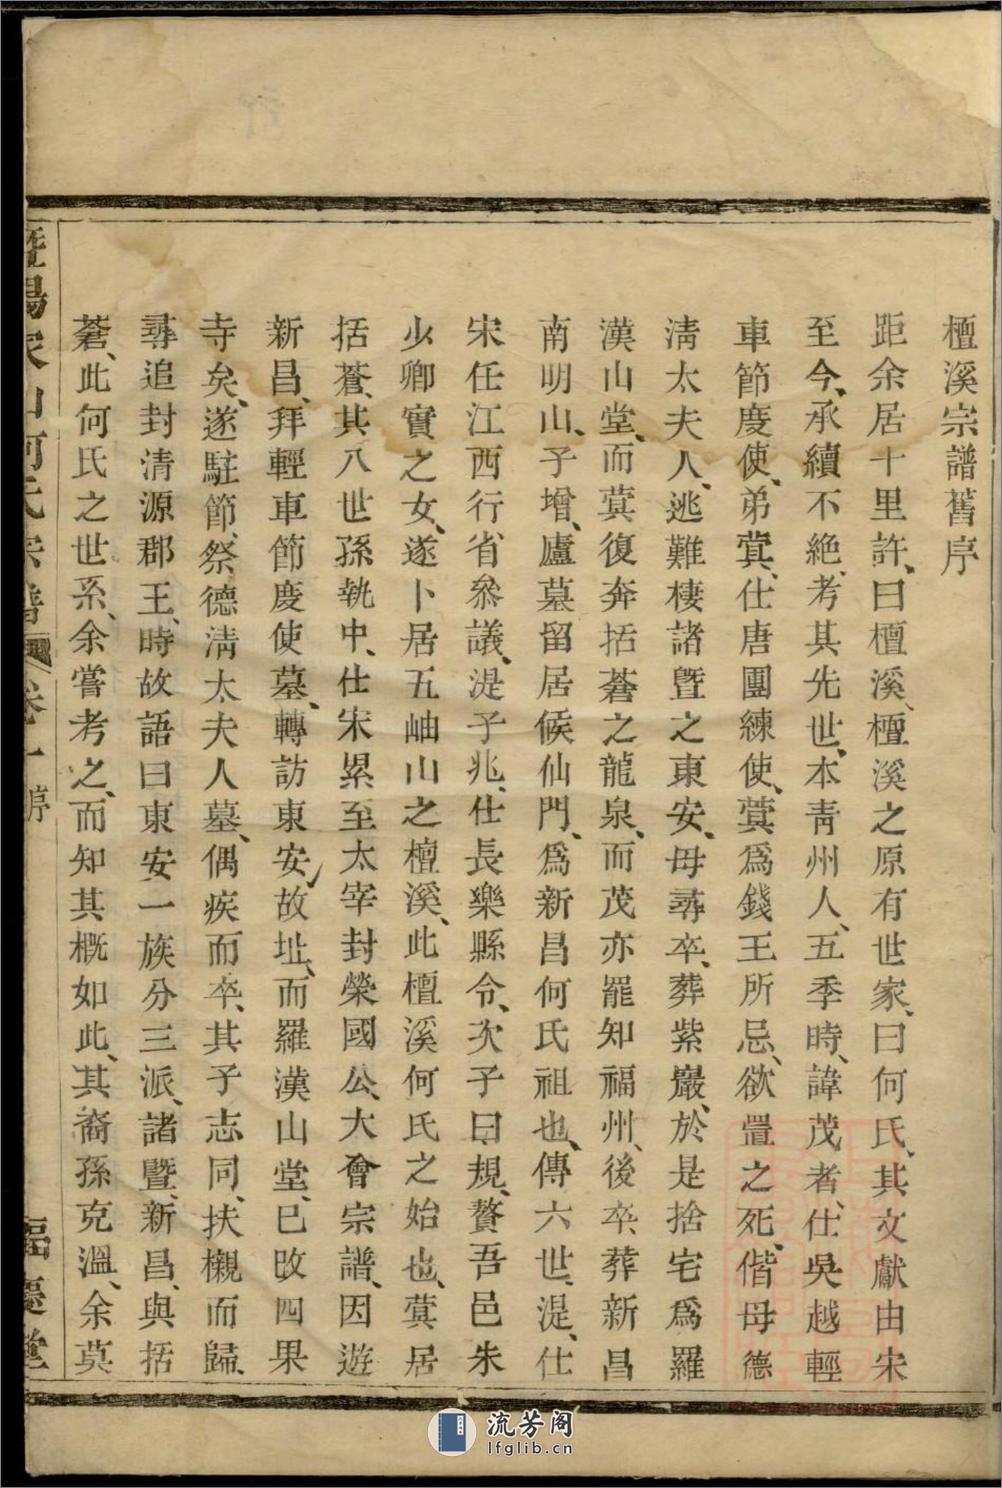 檀溪宗譜舊序
距余居十里許、曰檀溪、檀溪之原有世家、曰何氏、其文獻由宋
至今、承續不絕、考其先世、本靑州人、五季時、諱茂者、仕吳越輕
車節度使、弟蓂、仕唐團練使、蓂爲錢王所忌、欲置之死、偕母德
淸太夫人、逃難棲諸暨之東安、母尋卒、葬紫巖、於是捨宅爲羅
漢山堂、而蓂復奔括蒼之龍泉、而茂亦罷知福州、後卒葬新昌
南明山、子增、廬墓留居候仙門、爲新昌何氏祖也、傳六世、湜、仕
宋任江西行省叅議、湜子兆、仕長樂縣令、次子曰規、贅吾邑朱
少卿實之女、遂卜居五岫山之檀溪、此檀溪何氏之始也、蓂居
括蒼、其八世孫執中、仕宋累至太宰封榮國公、大會宗譜、因遊
新昌、拜輕車節度使墓、轉訪東安故址、而羅漢山堂、已改四果
寺矣、遂駐節、祭德淸太夫人墓、偶疾而卒、其子志同、扶櫬而歸、
尋追封清源郡王、時故語曰東安一族分三派、諸暨、新昌、與括
蒼、此何氏之世系、余嘗考之、而知其概如此、其裔孫克溫、余莫
暨陽 山何氏宗譜 卷一 序 福慶堂
流芳阁
lfglib.cn